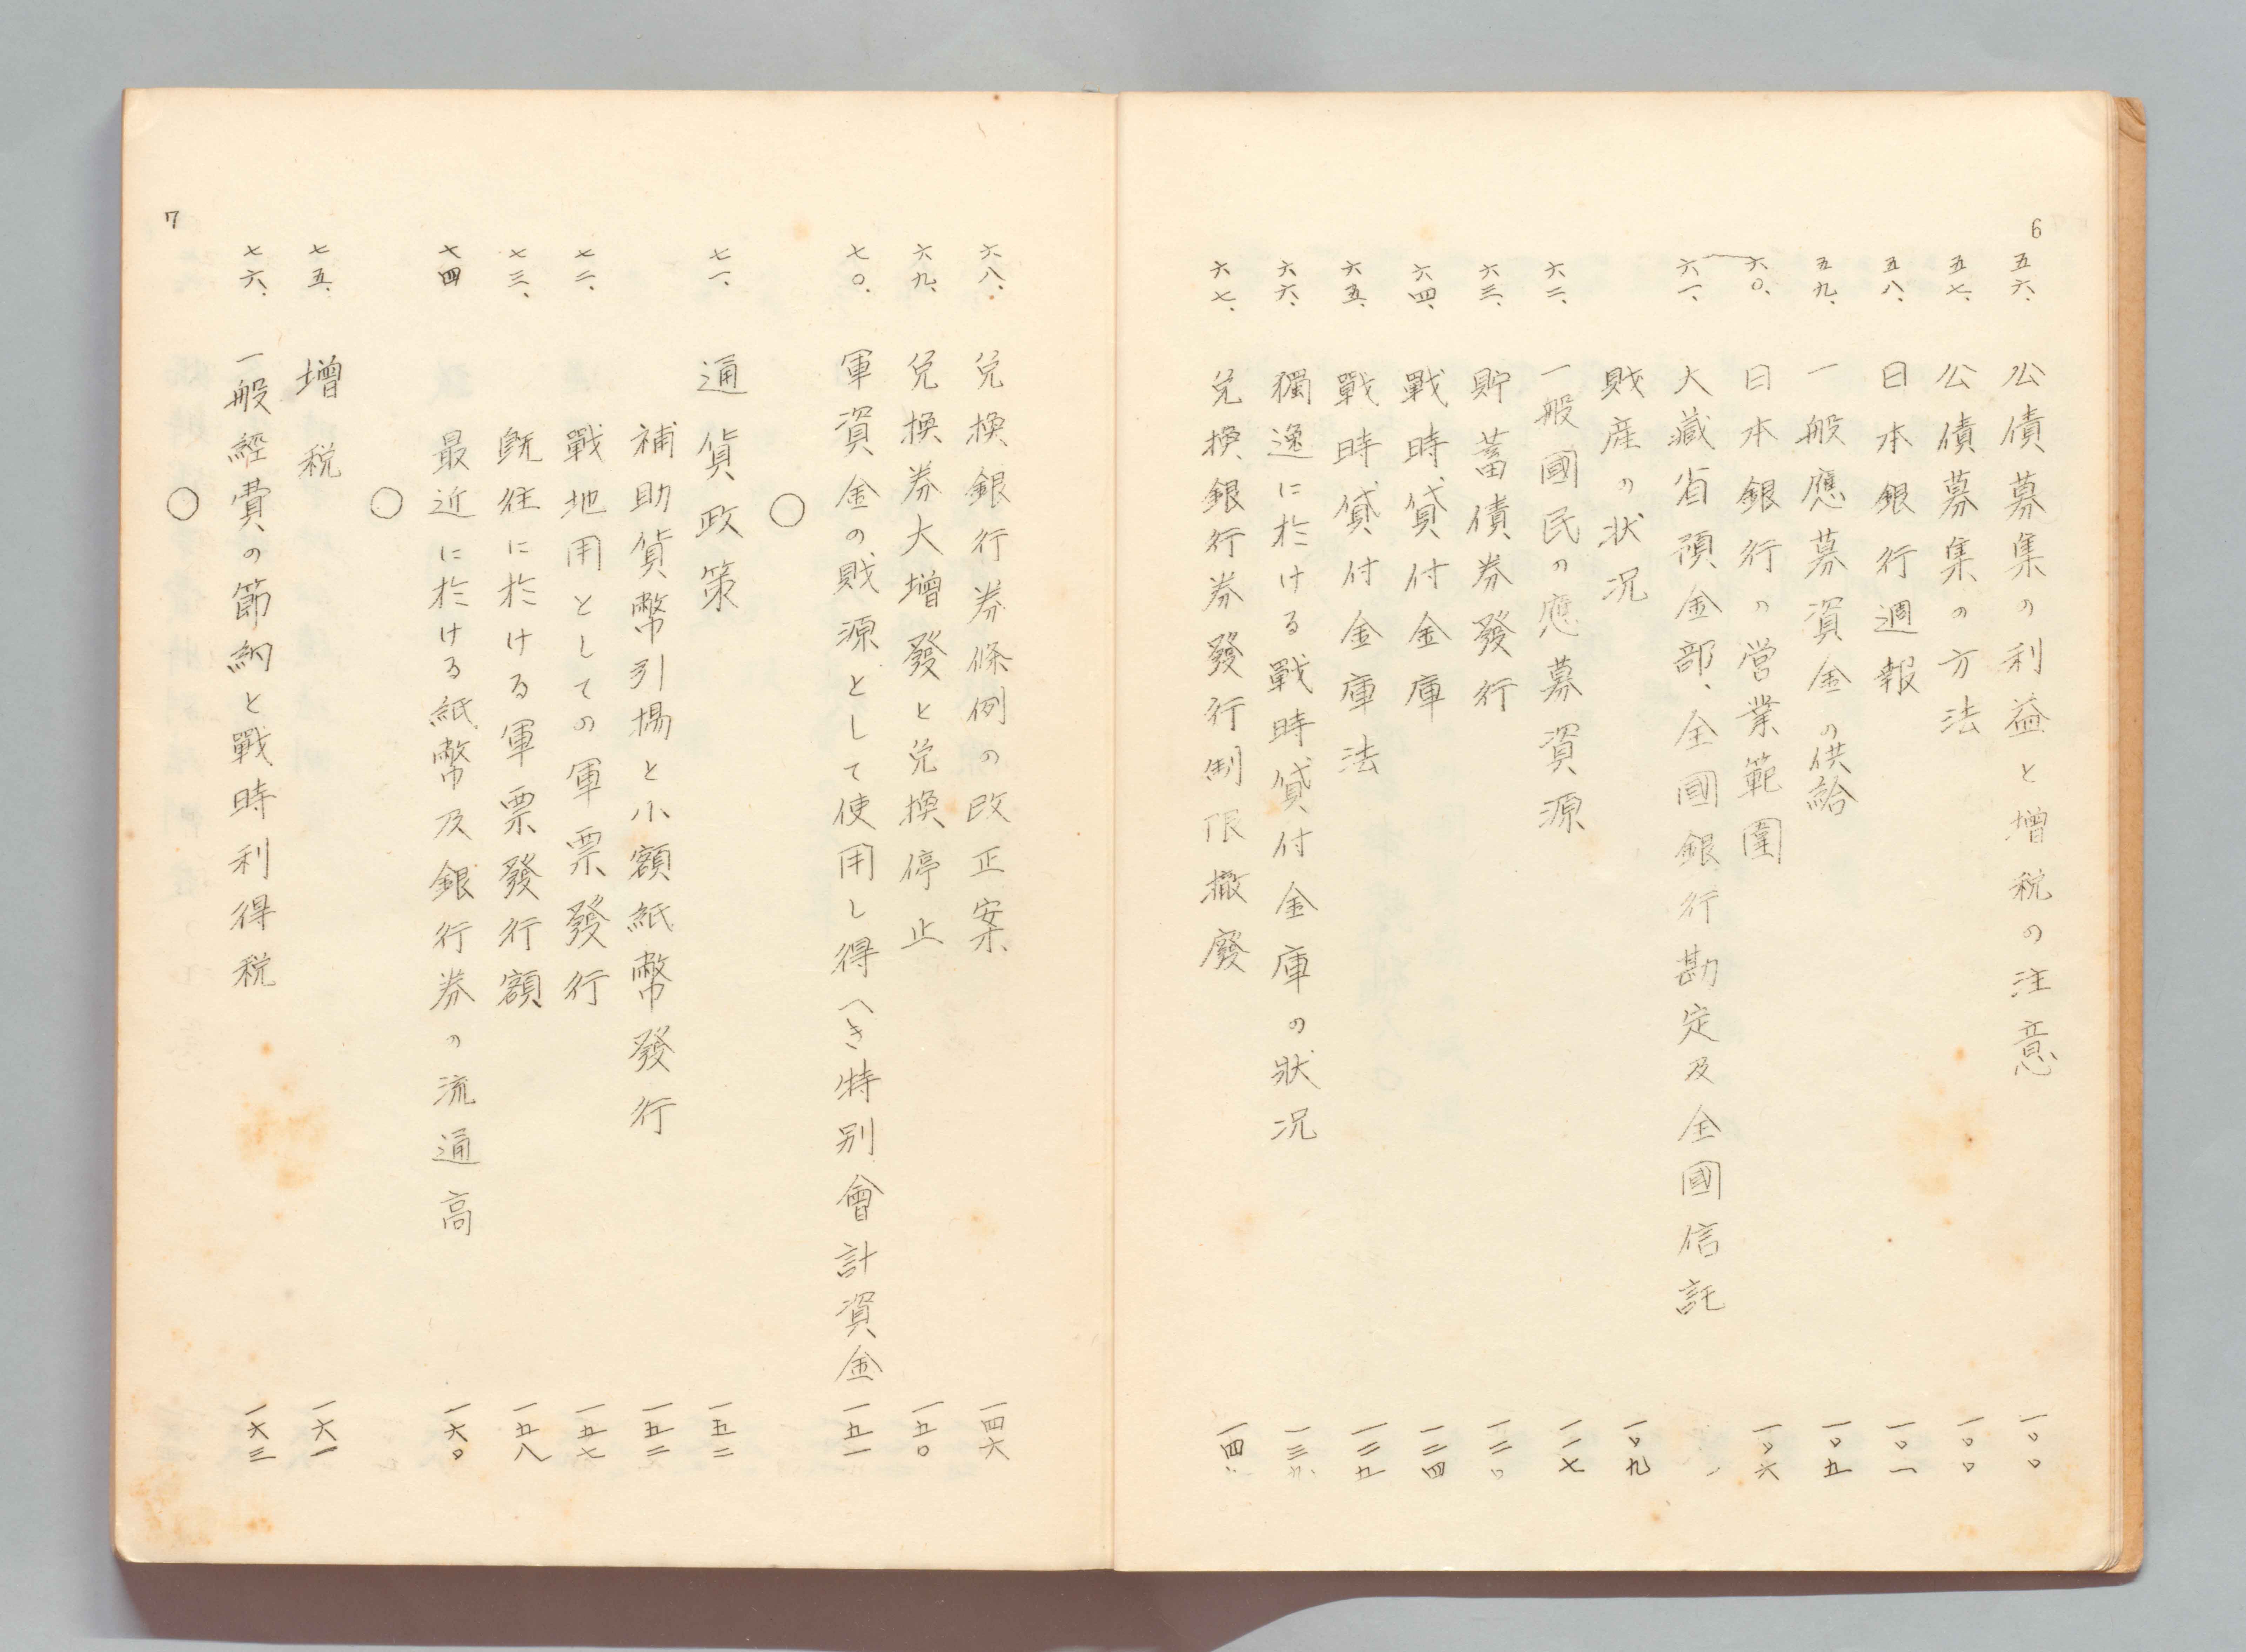 6
五六、公債募集の利益と増税の注意 一〇〇
五七、公債募集の方法 一〇〇
五八、日本銀行週報 一〇一
五九、一般應募資金の供給 一〇五
六〇、日本銀行の営業範圍 一〇六
六一、大藏省預金部、全國銀行勘定及全國信託
財産の状况 一〇九
六二、一般國民の應募資源 一一七
六三、貯蓄債券發行 一二〇
六四、戰時貸付金庫 一二四
六五、戰時貸付金庫法 一二九
六六、獨逸に於ける戰時貸付金庫の狀况
六七、兌換銀行券發行制限撤廢
六八、兌換銀行券條例の改正案 一四六
六九、兌換券大増發と兌換停止 一五〇
七〇、軍資金の財源として使用し得へき特別會計資金 一五一
〇
七一、通貨政策 一五二
補助貨幣引揚と小額紙幣發行 一五二
七二、戰地用としての軍票發行 一五七
七三、既往に於ける軍票發行額 一五八
七四 最近に於ける紙幣及銀行券の流通高 一六〇
〇
七五、増税 一六一
七六、一般經費の節約と戰時利得税 一六三
〇
7